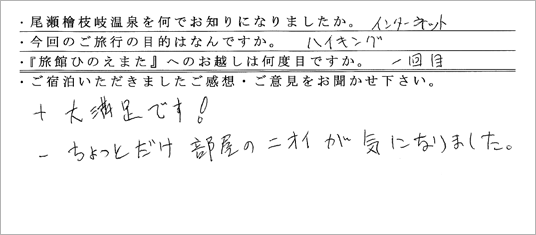 ・尾瀬檜枝岐温泉を何でお知りになりましたか。 インターネット
・今回のご旅行の目的はなんですか。 ハイキング
・『旅館ひのえまた』へのお越しは何度目ですか。 一回目
・ご宿泊いただきましたご感想・ご意見をお聞かせ下さい。
+ 大満足です!
- ちょっとだけ 部屋のニオイが気になりました。